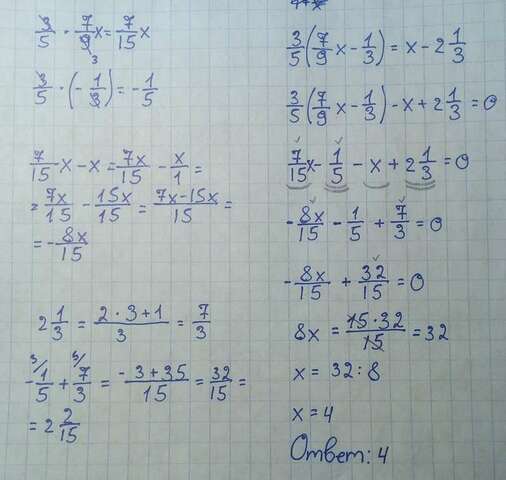 3/5 · 7/9 x = 7/15 x
3
3/5 · (- 1/3) = - 1/5
7/15 x - x = 7x/15 - x/1 =
= 7x/15 - 15x/15 = 7x-15x/15 =
= - 8x/15
2 1/3 = 2 · 3 + 1/3 = 7/3
- 3/ 1/5 + 5/ 7/3 = -3+35/15 = 32/15 =
= 2 2/15
3/5 (7/9 x - 1/3) = x - 2 1/3
3/5 (7/9 x - 1/3) - x + 2 1/3 = 0
7/15 x - 1/5 - x + 2 1/3 = 0
- 8x/15 - 1/5 + 7/3 = 0
- 8x/15 + 32/15 = 0
8x = 15·32/15 = 32
x = 32 : 8
x = 4
Ответ: 4